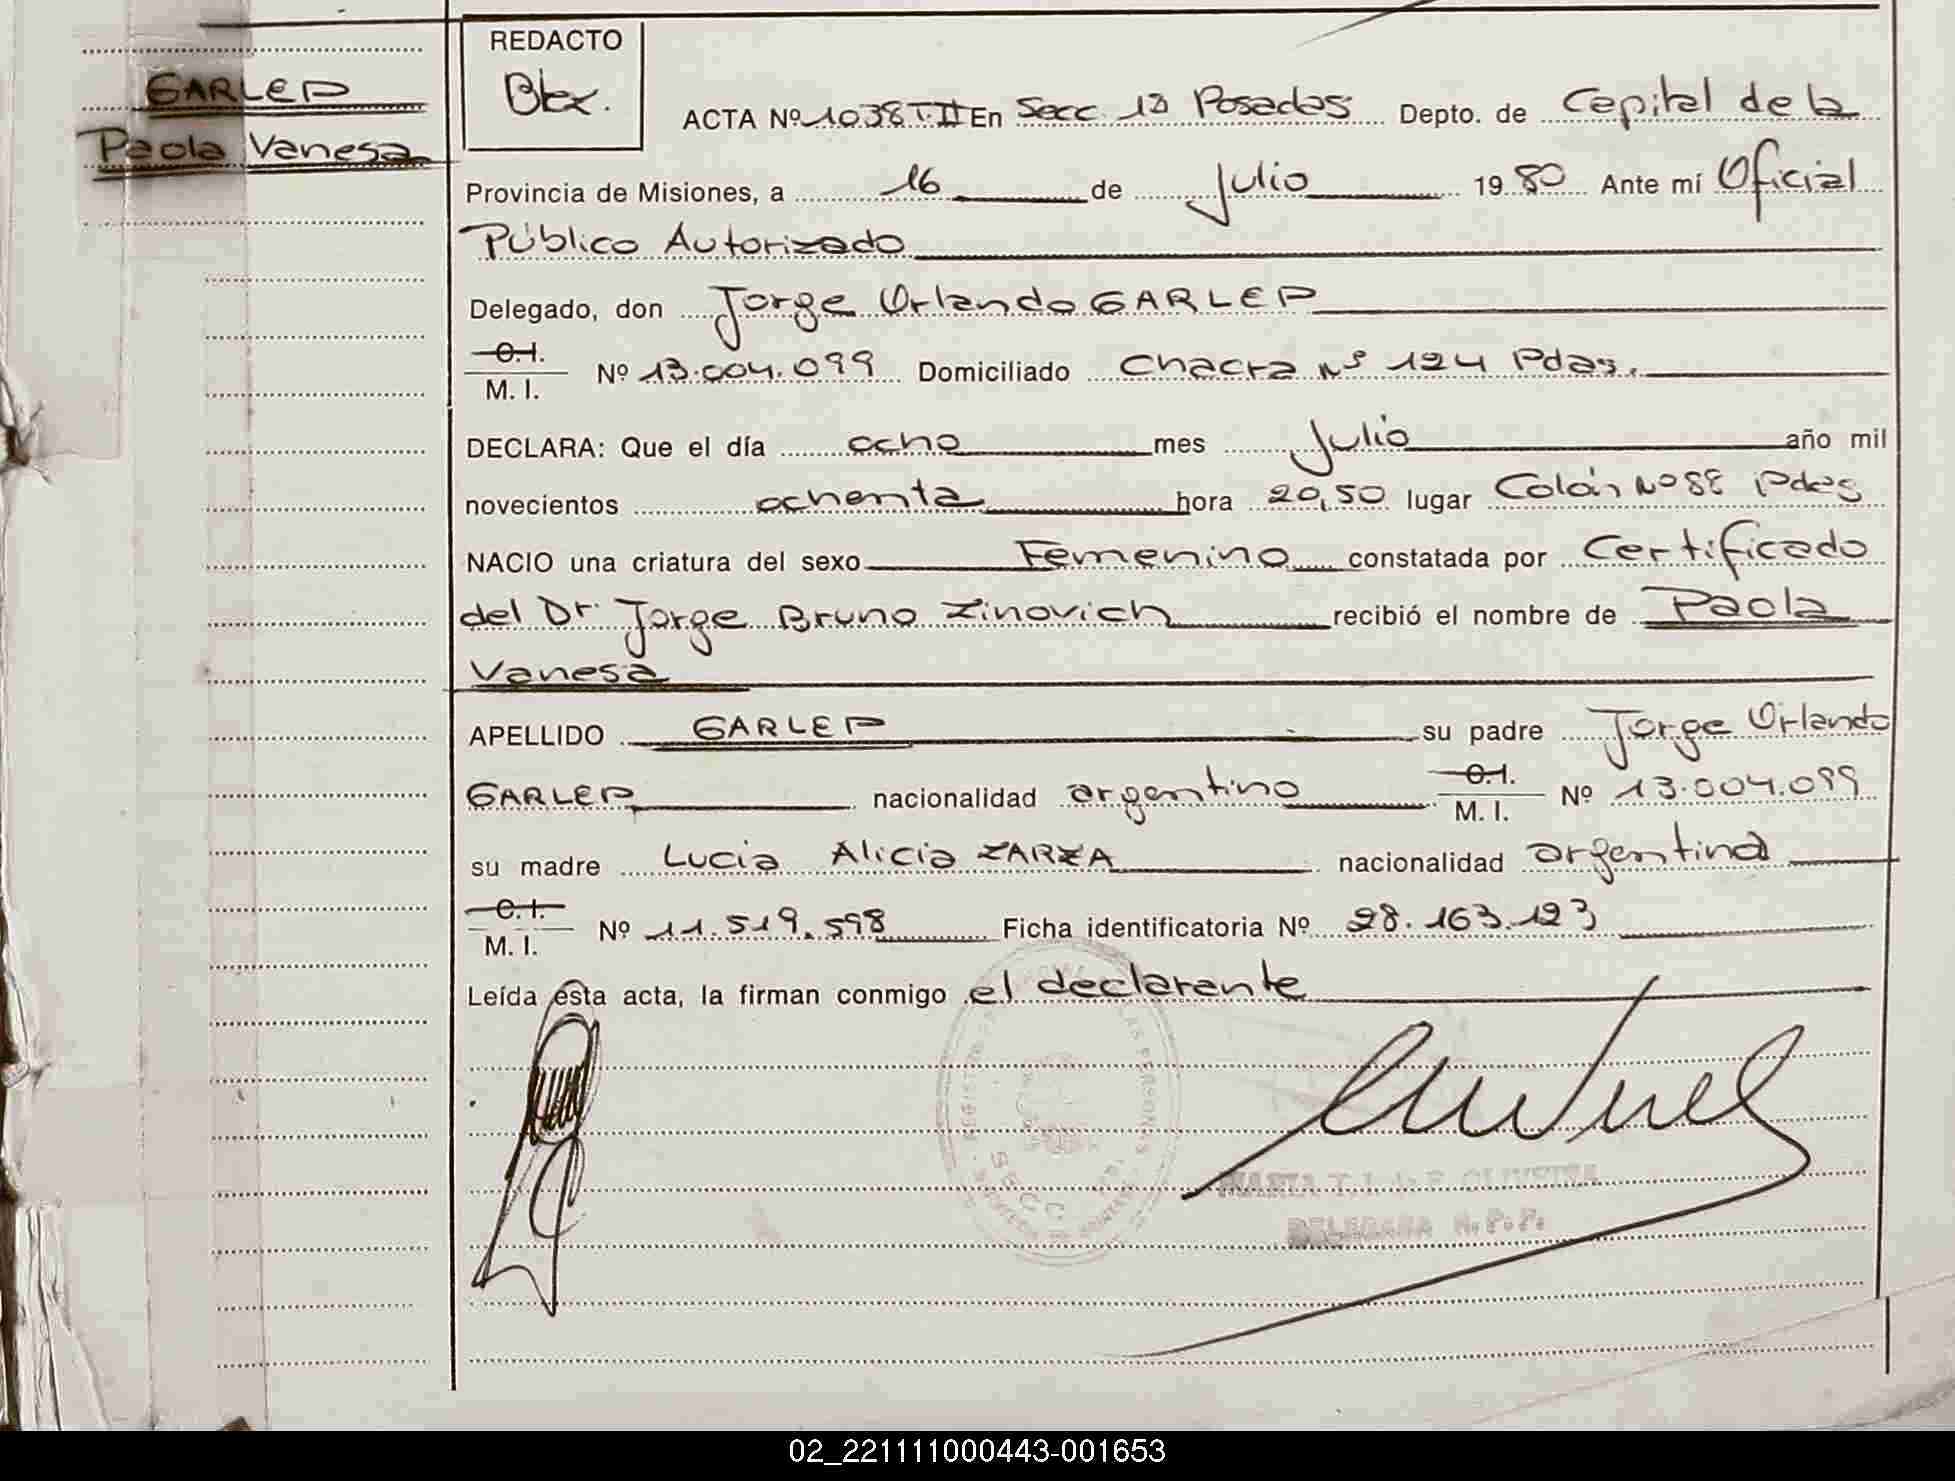 REDACTO
Blex.
GARLEP
Paola Vanesa
ACTA Nº 1038 T.II En Secc. 1ª Posadas Depto. de Capital de la
Provincia de Misiones, a 16 de Julio 1980 Ante mí Oficial
Público Autorizado
Delegado, don Jorge Orlando GARLEP
C.I.
M. I. Nº 13.004.099 Domiciliado Chacra Nº 124 Pdas.
DECLARA: Que el día ocho mes Julio año mil
novecientos ochenta hora 20,50 lugar Colón Nº 88 Pdas
NACIO una criatura del sexo Femenino constatada por Certificado
del Dr. Jorge Bruno Zinovich recibió el nombre de Paola
Vanesa
APELLIDO GARLEP su padre Jorge Orlando
GARLEP nacionalidad argentino C.I. M. I. Nº 13.004.099
su madre Lucia Alicia ZARZA nacionalidad argentina
C.I.
M. I. Nº 11.519.598 Ficha identificatoria Nº 28.163.123
Leída esta acta, la firman conmigo el declarante
MARIA T. I. de F. OLIVEIRA
DELEGADA R.P.P.
02_221111000443-001653